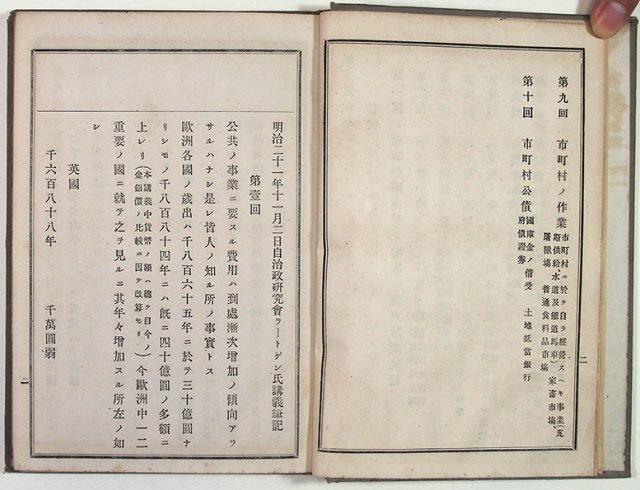 第九回 市町村ノ作業 市町村ニ於テ自ラ經營スヘキ事業(瓦
斯供給、水道及鐵道馬車) 家畜市塲、
屠獸塲、普通食料品市塲
第十回 市町村公債 國庫金ノ借受 土地抵當銀行
府債證券
二
明治二十一年十一月二日自治政研究會ラートゲン氏講義筆記
第壹回
公共ノ事業ニ要スル費用ハ到處漸次增加ノ傾向アラ
サルハナシ是レ皆人ノ知ル所ノ事實トス
歐洲各國ノ歲出ハ千八百六十五年ニ於テ三十億圓ナ
リシモノ千八百八十四年ニハ既ニ四十億圓ノ多額ニ
上レリ(本講義中貨幣ノ額ハ總テ目今ノ
金銀價ノ比較ニ因テ改算セリ)今歐洲中一二
重要ノ國ニ就テ之ヲ見ルニ其年々增加スル所左ノ如
シ
英國
千六百八十八年 千萬圓弱
一